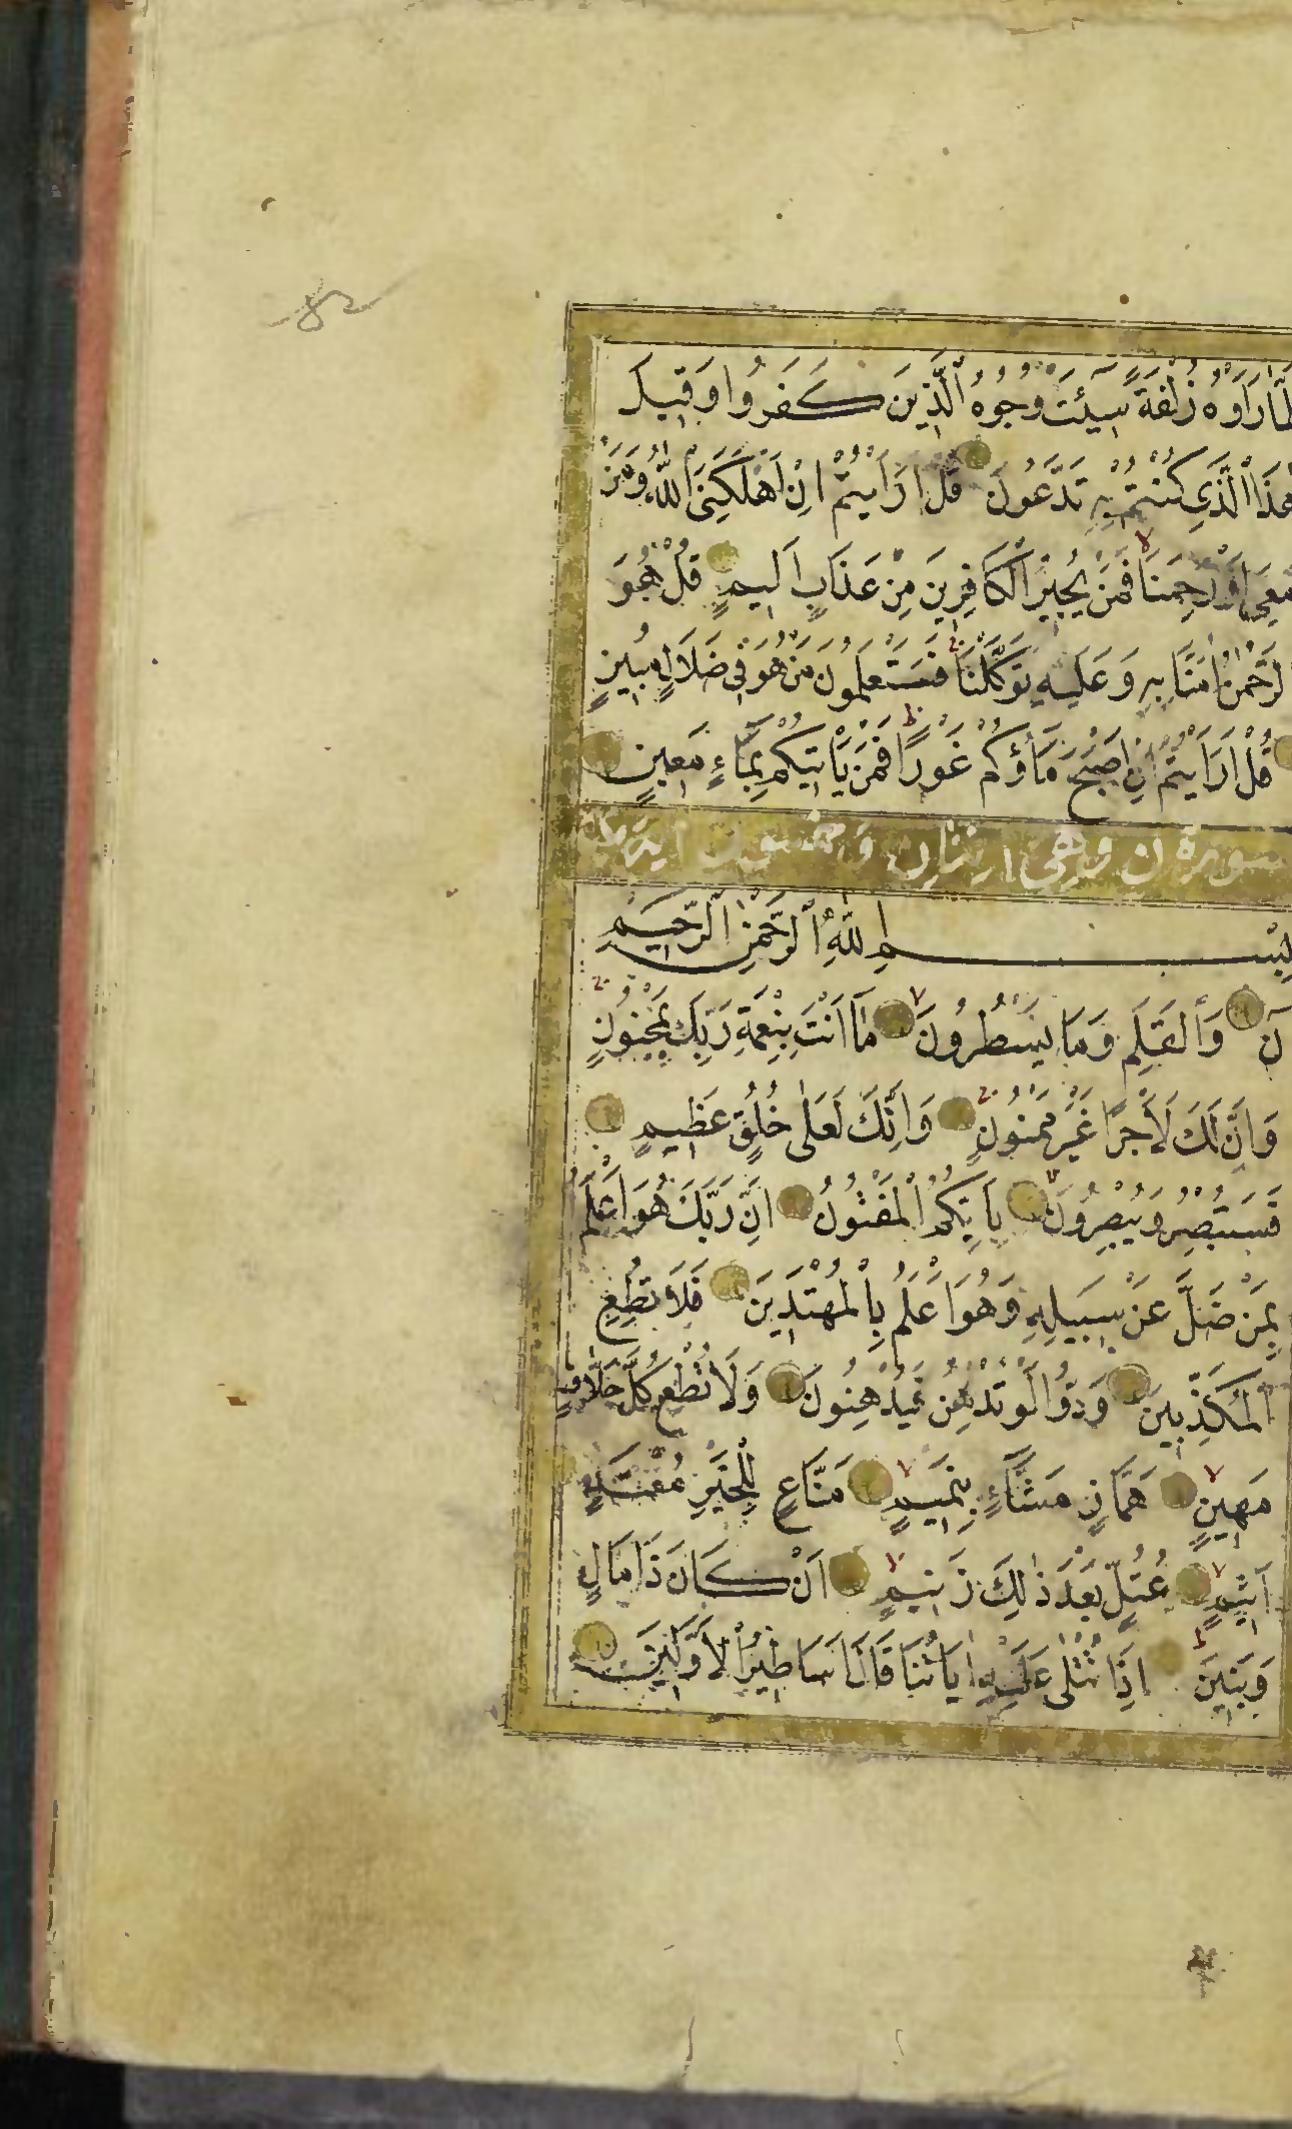 لَمَّا رَاَوْهُ زُلْفَةً سِٓيئَتْ وُجُوهُ الَّذِينَ كَفَرُوا وَقِيلَ
هٰذَا الَّذِى كُنْتُمْ بِهِ تَدَّعُونَ قُلْ اَرَاَيْتُمْ اِنْ اَهْلَكَنِىَ اللّٰهُ وَمَنْ
مَعِىَ اَوْ رَحِمَنَا فَمَنْ يُجِيرُ الْكَافِرِينَ مِنْ عَذَابٍ اَلِيمٍ قُلْ هُوَ
الرَّحْمٰنُ اٰمَنَّا بِهِ وَعَلَيْهِ تَوَكَّلْنَا فَسَتَعْلَمُونَ مَنْ هُوَ فِى ضَلَالٍ مُبِينٍ
قُلْ اَرَاَيْتُمْ اِنْ اَصْبَحَ مَٓاؤُكُمْ غَوْرًا فَمَنْ يَاْتِيكُمْ بِمَٓاءٍ مَعِينٍ
سورة ن وهى اثنتان وخمسون اية
بِسْمِ اللّٰهِ الرَّحْمٰنِ الرَّحِيمِ
نٓ وَالْقَلَمِ وَمَا يَسْطُرُونَ مَٓا اَنْتَ بِنِعْمَةِ رَبِّكَ بِمَجْنُونٍ
وَاِنَّ لَكَ لَاَجْرًا غَيْرَ مَمْنُونٍ وَاِنَّكَ لَعَلٰى خُلُقٍ عَظِيمٍ
فَسَتُبْصِرُ وَيُبْصِرُونَ بِاَيِّكُمُ الْمَفْتُونُ اِنَّ رَبَّكَ هُوَ اَعْلَمُ
بِمَنْ ضَلَّ عَنْ سَبِيلِهِ وَهُوَ اَعْلَمُ بِالْمُهْتَدِينَ فَلَا تُطِعِ
الْمُكَذِّبِينَ وَدُّوا لَوْ تُدْهِنُ فَيُدْهِنُونَ وَلَا تُطِعْ كُلَّ حَلَّافٍ
مَهِينٍ هَمَّازٍ مَشَّٓاءٍ بِنَمِيمٍ مَنَّاعٍ لِلْخَيْرِ مُعْتَدٍ
اَثِيمٍ عُتُلٍّ بَعْدَ ذٰلِكَ زَنِيمٍ اَنْ كَانَ ذَا مَالٍ
وَبَنِينَ اِذَا تُتْلٰى عَلَيْهِ اٰيَاتُنَا قَالَ اَسَاطِيرُ الْاَوَّلِينَ